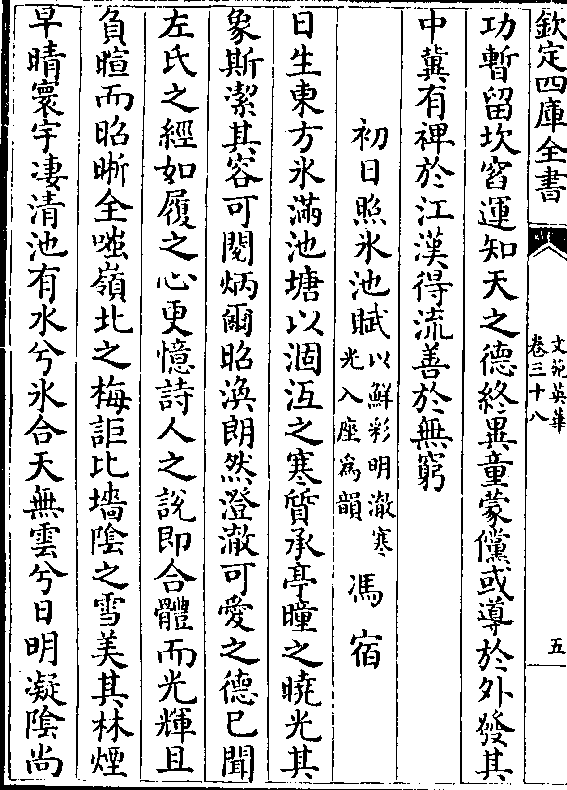 欽定四庫全書
文苑英華
卷三十八
五
功暫留坎窞運知天之德終異童蒙儻或導於外發其
中冀有裨於江漢得流善於無窮
初日照氷池賦以鮮彩明澈寒
光入座爲韻
馮宿
日生東方氷滿池塘以涸沍之寒質承亭曈之曉光其
象斯潔其容可閱炳爾昭渙朗然澄澈可愛之德已聞
左氏之經如履之心更憶詩人之說即合體而光輝且
負暄而昭晣全嗤嶺北之梅詎比墻陰之雪美其林煙
早晴寰宇凄清池有水兮氷合天無雲兮日明凝陰尚